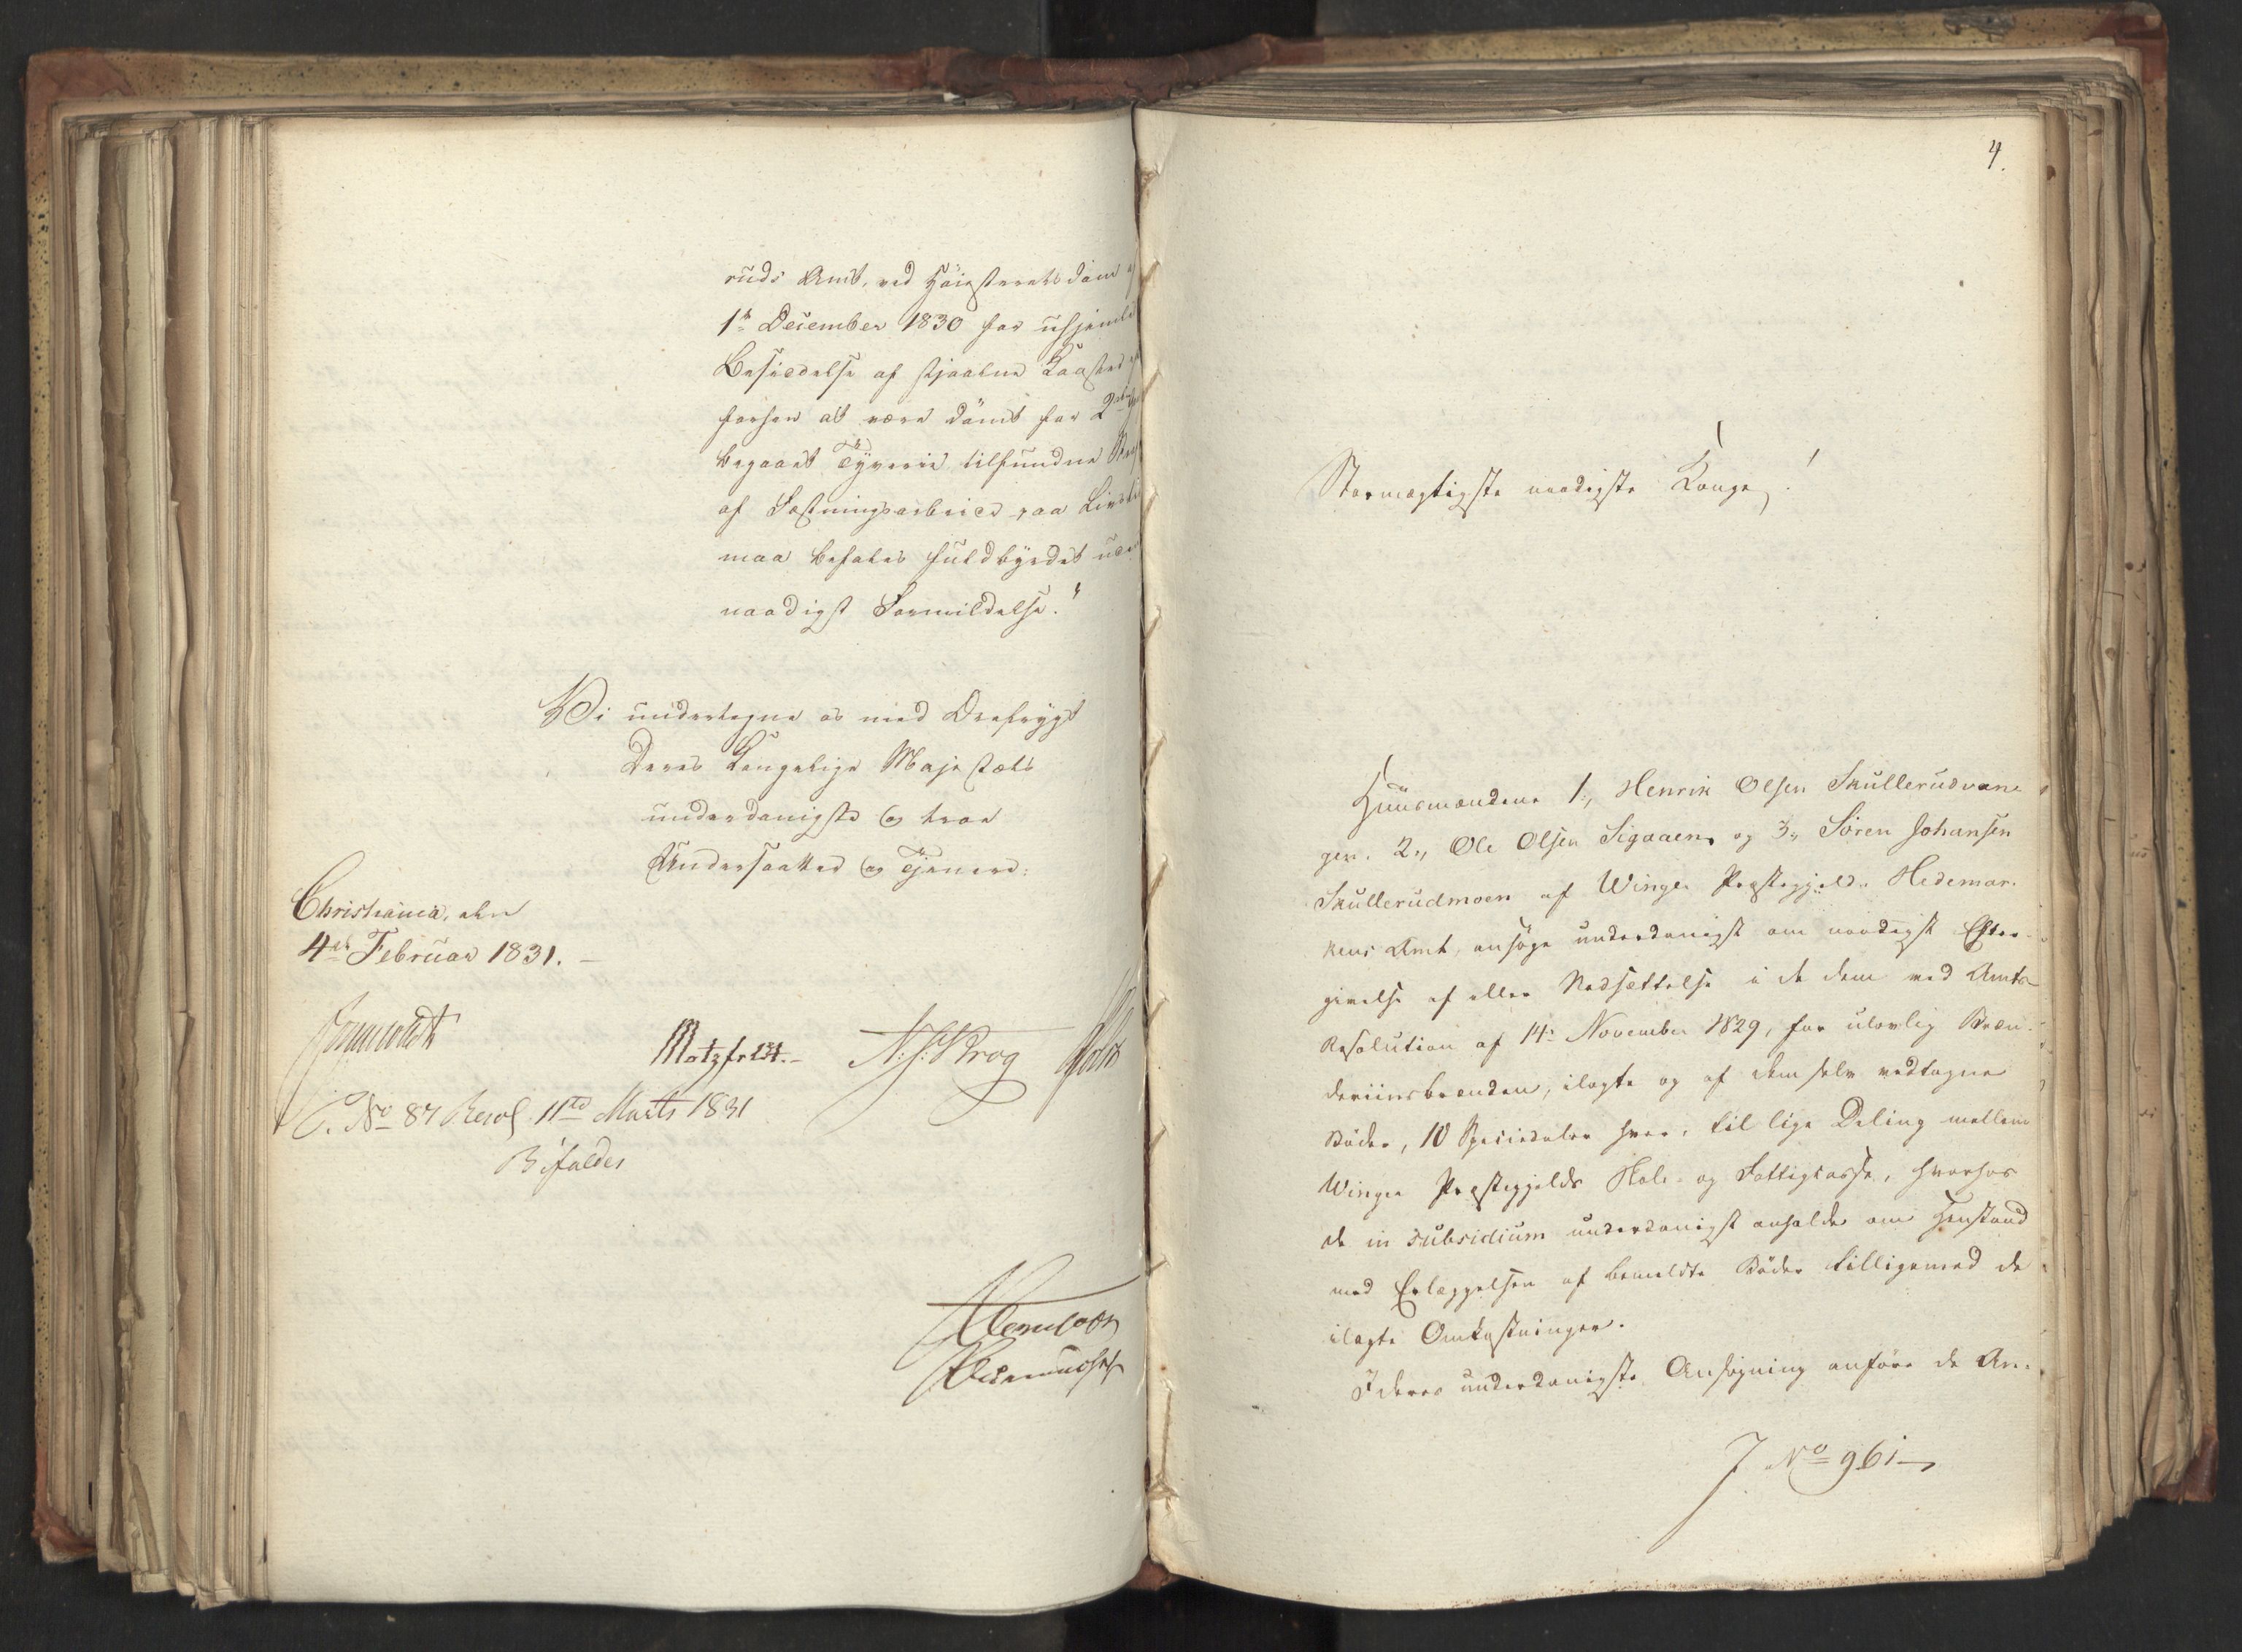 ruds Amt, ved Høiesteretsdom af
1te December 1830 for uhjemlet
Besiddelse af stjaalne Koster,
forhen at være dømt for 2den Gang
begaaet Tyverie tilfundne Straf
af Fæstningsarbeide paa Livstid
maa befales fuldbyrdet uden
naadigst Formildelse."
Vi undertegne os med Ærefrygt
Deres Kongelige Majestæts
underdanigste og troe
Undersaatter og Tjenere:
Christiania, den
4de Februar 1831.
Motzfeldt. N. J. Krog Holst
No 87 Resol 11te Marts 1831
Bifaldes
4.
Stormægtigste naadigste Konge!
Huusmændene 1., Henrik Olsen Skullerudvan-
gen. 2., Ole Olsen Sigaaen og 3., Søren Johansen
Skullerudmoen af Winger Præstegjeld, Hedemar-
kens Amt, ansøge underdanigst om naadigst Efter-
givelse af eller Nedsættelse i de dem ved Amts-
Resolution af 14de November 1829, for ulovlig Bræn-
deviinsbrænden, ilagte og af dem selv vedtagne
Bøder, 10 Speciedaler hver, til lige Deling mellem
Winger Præstegjelds Skole- og Fattigkasse, hvorhos
de in subsidium underdanigst anholde om Henstand
med Erlæggelsen af bemeldte Bøder tilligemed de
ilagte Omkostninger.
I deres underdanigste Ansøgning anføre de An-
J No 961